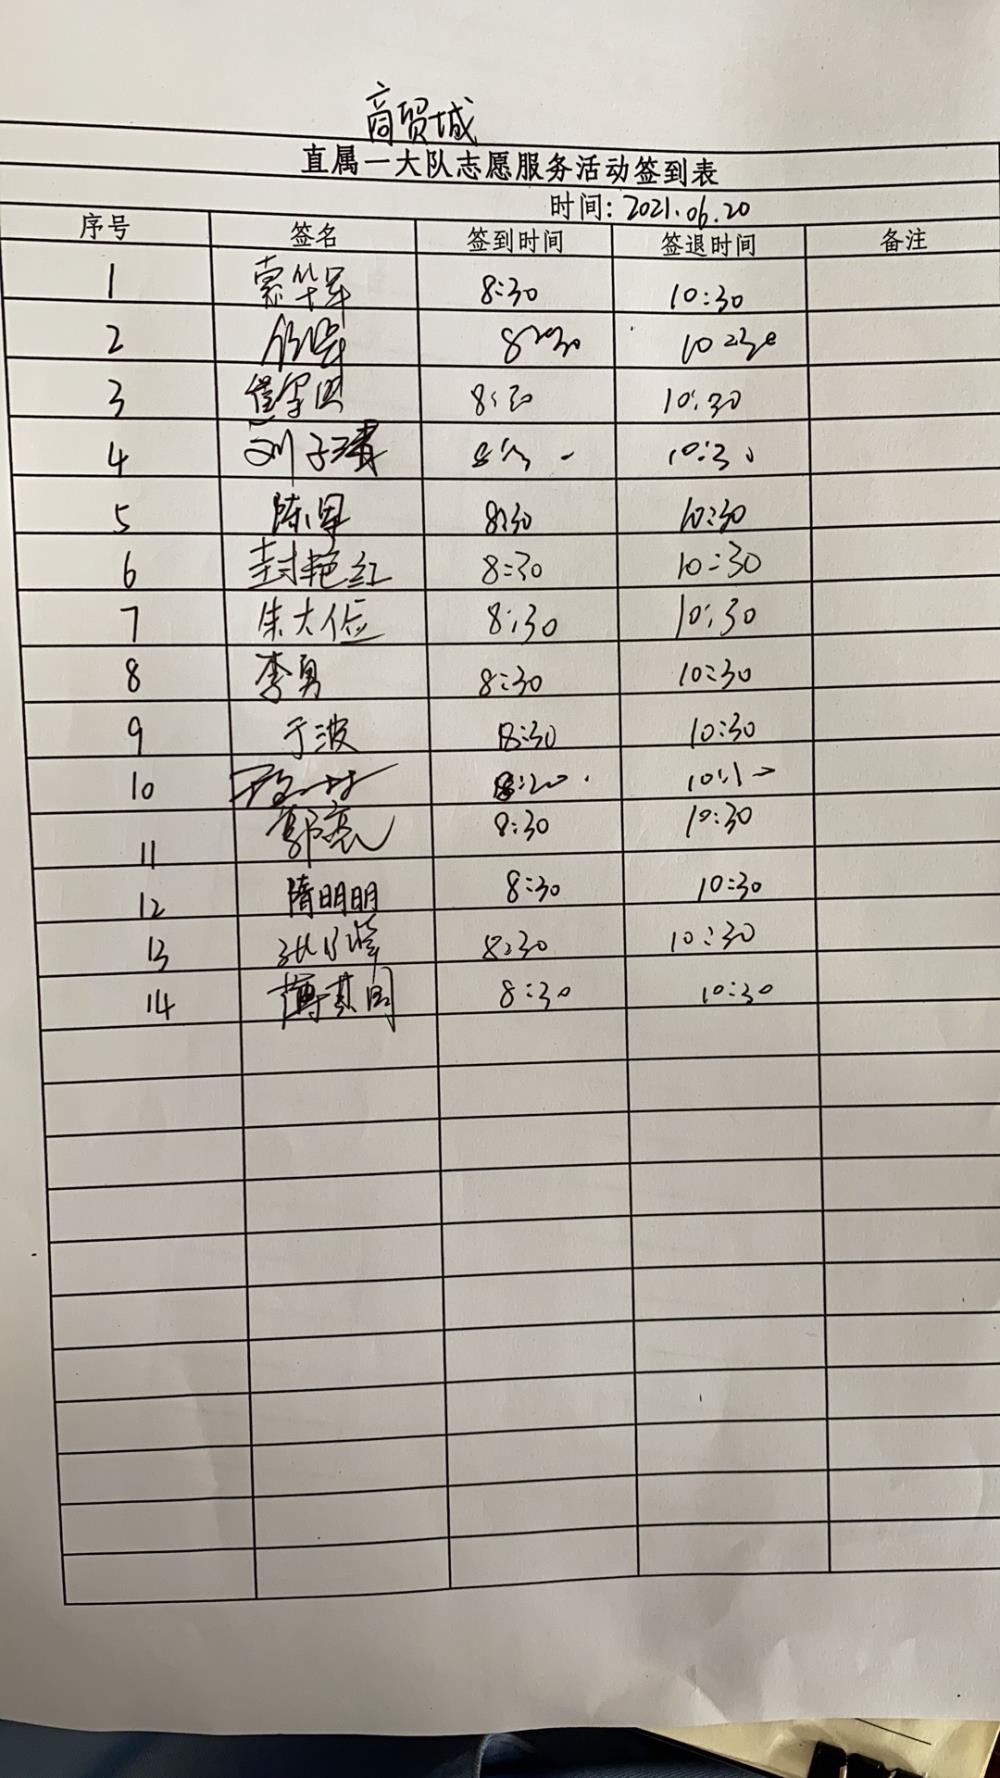 商贸城
直属一大队志愿服务活动签到表
时间：2021.06.20
序号 签名 签到时间 签退时间 备注
1 索华军 8:30 10:30
2 8:30 10:30
3 8:30 10:30
4 刘子靖 10:30
5 陈军 8:30 10:30
6 封艳红 8:30 10:30
7 朱大俭 8:30 10:30
8 李勇 8:30 10:30
9 于波 8:30 10:30
10 8:20
11 郭亮 8:30 10:30
12 隋明明 8:30 10:30
13 8:30 10:30
14 8:30 10:30